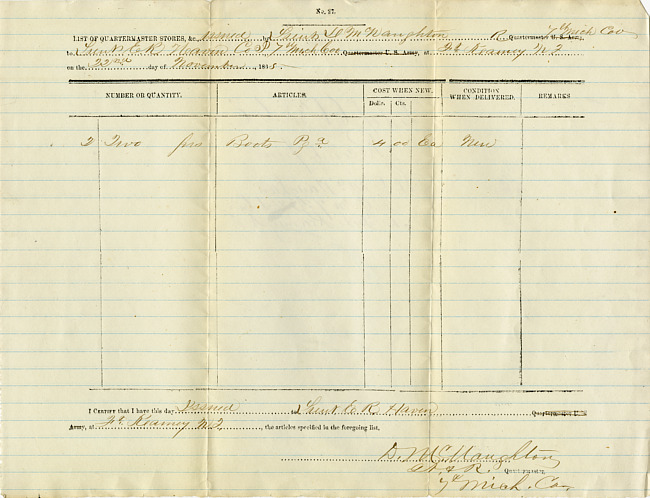 No. 27.
LIST OF QUARTERMASTER STORES, &c. Issued by Lieut D McNaughton R. Quartermaster U. S. Army, 7th Mich Cav
to Lieut E. R. Haven Co 7th Mich Cav Quartermaster U. S. Army, at Ft Kearney N.T.
on the 22nd day of November, 1865.
NUMBER OR QUANTITY. ARTICLES. COST WHEN NEW. CONDITION WHEN DELIVERED. REMARKS
Dolls. Cts.
2 Two prs Boots 4 00 Ea New
I CERTIFY that I have this day Issued to Lieut E. R. Haven Quartermaster U. S.
Army, at Ft. Kearney N.T., the articles specified in the foregoing list.
D. McNaughton
Lt & R. QUARTERMR.
7th Mich. Cav